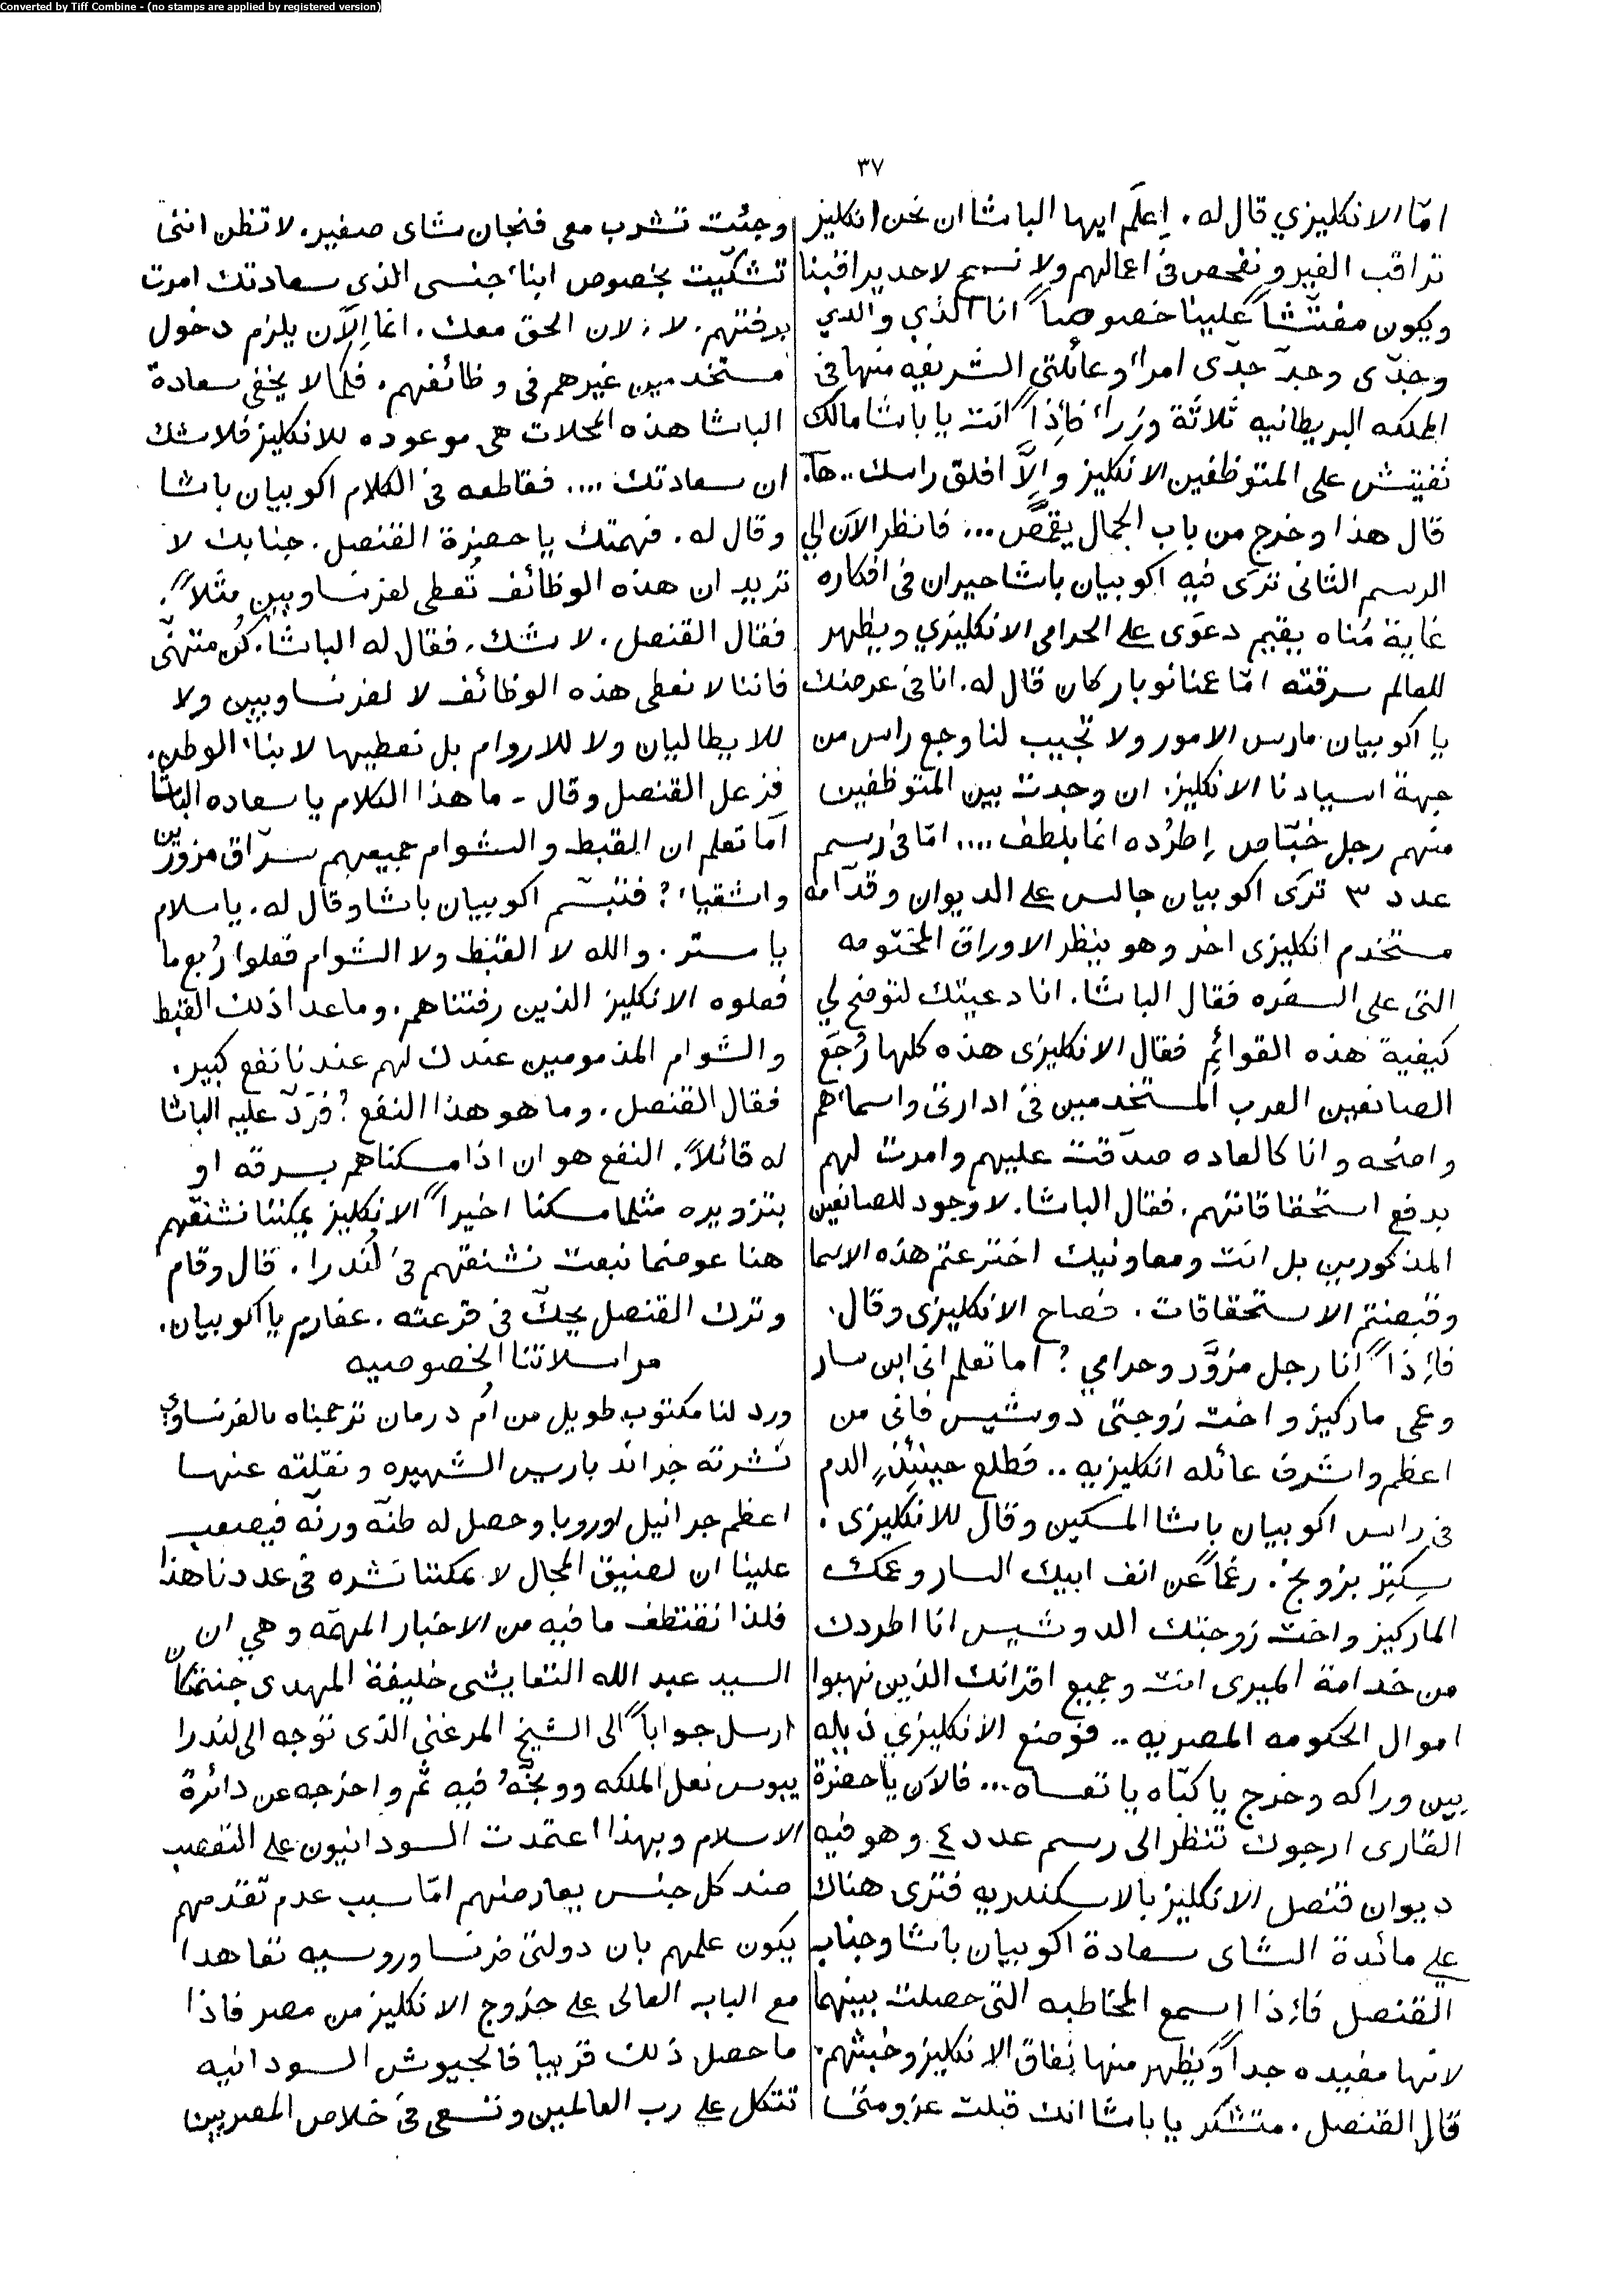 Converted by Tiff Combine - (no stamps are applied by registered version)
٣٧
امّا الانكليزي قال له. اِعلَم ايها الباشا ان نحن انكليز
نراقب الغير ونفحص فى اعمالهم ولا نسمح لاحد يراقبنا
ويكون مفتّشاً علينا خصوصاً انا الذي والدي
وجدّى وجدّ جدّى امراء وعائلتي الشريفه منها فى
المملكه البريطانيه ثلاثة وزراء فأِذاً انت يا باشا مالك
تفتيش على المتوظفين الانكليز والاَّ افلق راسك.. هآ.
قال هذا وخرج من باب الجمال يقمصّ... فانظر الآن الي
الرسم الثانى ترَى فيه اكوبيان باشا حيران فى افكاره
غاية مُناه يقيم دعوَى على الحرامى الانكليزي ويظهر
للعالم سرقته امّا عنانو باركان قال له. انا فى عرضك
يا اكوبيان مارس الامور ولا تجيب لنا وجع راس من
جهة اسيادنا الانكليز. ان وجدت بين المتوظفين
منهم رجل خبّاص اِطرُده انما بلطف.... امّا فى رسم
عدد ٣ ترَى اكوبيان جالس على الديوان وقدّامه
مستخدم انكليزى اخر وهو ينظر الاوراق المختومه
التى على السفره فقال الباشا. انا دعيتك لتوضح لي
كيفية هذه القوائِم فقال الانكليزى هذه كلها رُجَع
الصانعين العرب المستخدمين فى ادارتى واسمائهم
واضحه وانا كالعاده صدّقت عليهم وامرت لهم
بدفع استحقاقاتهم. فقال الباشا. لا وجود للصانعين
المذكورين بل انت ومعاونيك اخترعتم هذه الاسما
وقبضتم الاستحقاقات. فصاح الانكليزى وقال.
فأِذاً انا رجل مزوَّر وحرامي؟ اما تعلم انى ابن سار
وعمى ماركيز واخت زوجتى دوشيس فانى من
اعظم واشرف عائله انكليزيه.. فطلع حينئِذٍ الدم
فى راس اكوبيان باشا المسكين وقال للانكليزى.
سِكِتِز بزونج. رغماً عن انف ابيك السار وعمك
الماركيز واخت زوجتك الدوشيس انا اطردك
من خدامة الميرى انت وجميع اقرانك الذين نهبوا
اموال الحكومه المصريه.. فوضع الانكليزي ذيله
بين وراكه وخرج يا كبّاه يا تعساه... فالان يا حضرة
القارى ارجوك تنظر الى رسم عدد ٤ وهو فيه
ديوان قنصل الانكليز بالاسكندريه فترى هناك
على مائدة الشاى سعادة اكوبيان باشا وجناب
القنصل فأِذا اسمع المخاطبه التى حصلت بينهما
لانها مفيده جداً ويظهر منها نفاق الانكليز وخبثهم.
قال القنصل. متشكر يا باشا انك قبلت عزومتى
وجئت تشرب معى فنجان شاى صغير. لا تظن اننى
تشكّيت بخصوص ابناء جنسى الذى سعادتك امرت
برفتهم. لا، لان الحق معك. انما اِلآن يلزم دخول
مستخدمين غيرهم فى وظائفهم. فكما لا يخفى سعادة
الباشا هذه المحلات هى موعوده للانكليز فلا شك
ان سعادتك.... فقاطعه فى الكلام اكوبيان باشا
وقال له. فهمتك يا حضرة القنصل. جنابك لا
تريد ان هذه الوظائف تُعطى لفرنساويين مثلاً.
فقال القنصل. لا شك. فقال له الباشا. كُن متهنّى
فاننا لا نعطى هذه الوظائف لا لفرنساويين ولا
للايطاليان ولا للاروام بل نعطيها لابناء الوطن.
فزعل القنصل وقال - ما هذا الكلام يا سعاده الباشا
آما تعلم ان القبط والشوام جميعهم سرّاق مزوّرين
واشقياء؟ فتبسّم اكوبيان باشا وقال له. يا سلام
يا مستر. والله لا القبط ولا الشوام فعلوا رُبع ما
فعلوه الانكليز الذين رفتناهم. وما عدا ذلك القبط
والشوام المذمومين عندك لهم عندنا نفع كبير.
فقال القنصل. وما هو هذا النفع؟ فَردّ عليه الباشا
له قائلاً. النفع هو ان اذا مسكناهم بسرقه او
بتزويره مثلما مسكنا اخيراً الانكليز يمكننا نشنقهم
هنا عوضما نبعت نشنقهم فى لُندرا. قال وقام
وترك القنصل يحكّ فى قرعته. عفارم يا اكوبيان.
مراسلاتنا الخصوصيه
ورد لنا مكتوب طويل من اُم درمان ترجمناه بالفرنساوي
نشرته جرائد باريس الشهيره ونقلته عنها
اعظم جرانيل اوروبا وحصل له طنّه ورنّه فيصعب
علينا ان لضيق المجال لا يمكننا نشره فى عددنا هذا
فلذا نقتطف ما فيه من الاخبار المهمّه وهي ان
السيد عبد الله التعايشى خليفة المهدى جنتمكان
ارسل جواباً الى الشيخ المرغنى الذى توجه الى لندرا
يبوس نعل الملكه ووبخّهُ فيه ثم واخرجه عن دائرة
الاسلام وبهذا اعتمدت السودانيون على التعصب
ضد كل جنس يعارضهم امّا سبب عدم تقدمهم
يكون علمهم بان دولتى فرنسا وروسيه تعاهدا
مع الباب العالى على خروج الانكليز من مصر فاذا
ما حصل ذلك قريبا فالجيوش السودانيه
تتكل على رب العالمين وتسعى فى خلاص المصريين